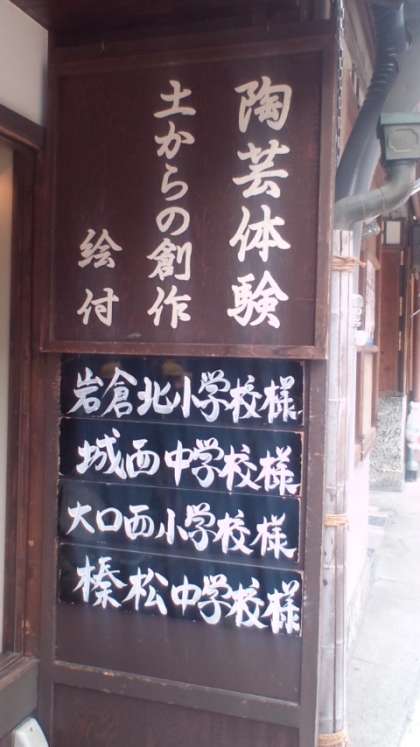 陶芸体験
土からの創作
絵付
岩倉北小学校様
城西中学校様
大口西小学校様
榛松中学校様